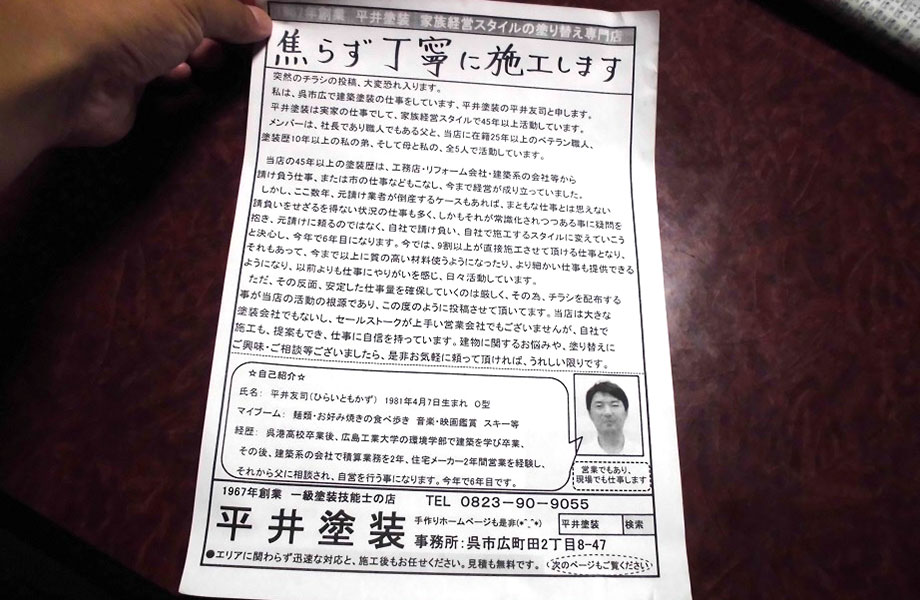 1967年創業 平井塗装 家族経営スタイルの塗り替え専門店
焦らず丁寧に施工します
突然のチラシの投稿、大変恐れ入ります。
私は、呉市広で建築塗装の仕事をしています、平井塗装の平井友司と申します。
平井塗装は実家の仕事でして、家族経営スタイルで45年以上活動しています。
メンバーは、社長であり職人でもある父と、当店に在籍25年以上のベテラン職人、
塗装歴10年以上の私の弟、そして母と私の、全5人で活動しています。
当店の45年以上の塗装歴は、工務店・リフォーム会社・建築系の会社等から
請け負う仕事、または市の仕事などもこなし、今まで経営が成り立っていました。
しかし、ここ数年、元請け業者が倒産するケースもあれば、まともな仕事とは思えない
請負いをせざるを得ない状況の仕事も多く、しかもそれが常識化されつつある事に疑問を
抱き、元請けに頼るのではなく、自社で請け負い、自社で施工するスタイルに変えていこう
と決心し、今年で6年目になります。今では、9割以上が直接施工させて頂ける仕事となり、
それもあって、今まで以上に質の高い材料使うようになったり、より細かい仕事も提供できる
ようになり、以前よりも仕事にやりがいを感じ、日々活動しています。
ただ、その反面、安定した仕事量を確保していくのは厳しく、その為、チラシを配布する
事が当店の活動の根源であり、この度のように投稿させて頂いてます。当店は大きな
塗装会社でもないし、セールストークが上手い営業会社でもございませんが、自社で
施工も、提案もでき、仕事に自信を持っています。建物に関するお悩みや、塗り替えに
ご興味・ご相談等ございましたら、是非お気軽に頼って頂ければ、うれしい限りです。
☆自己紹介☆
氏名: 平井友司(ひらいともかず) 1981年4月7日生まれ O型
マイブーム: 麺類・お好み焼きの食べ歩き 音楽・映画鑑賞 スキー等
経歴: 呉港高校卒業後、広島工業大学の環境学部で建築を学び卒業、
その後、建築系の会社で積算業務を2年、住宅メーカー2年間営業を経験し、
それから父に相談され、自営を行う事になります。今年で6年目です。
営業でもあり、
現場でも仕事します
1967年創業 一級塗装技能士の店 TEL 0823-90-9055
平井塗装 手作りホームページも是非(*^_^*) 平井塗装 検索
事務所:呉市広町田2丁目8-47
●エリアに関わらず迅速な対応と、施工後もお任せください。見積も無料です。 (次のページもご覧ください)